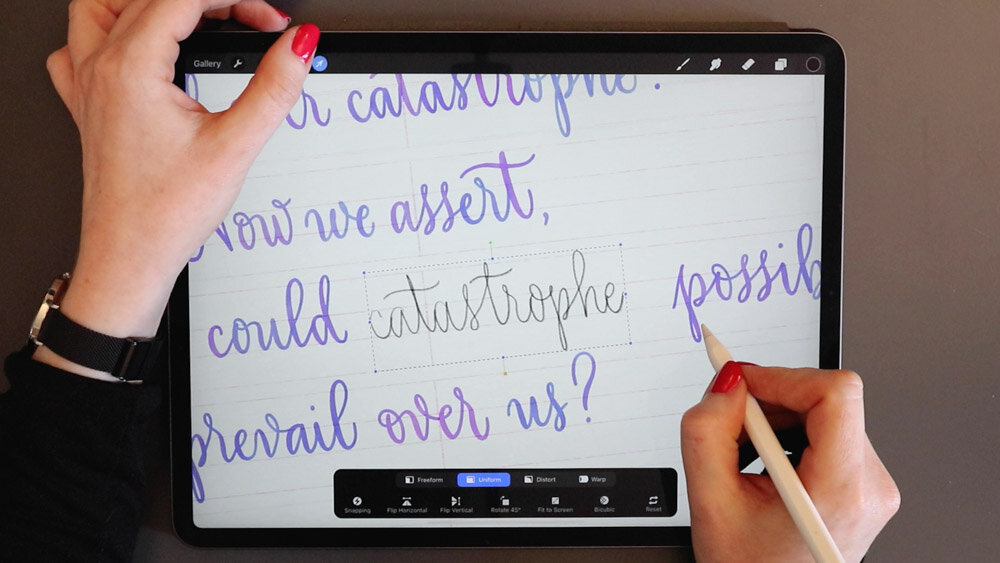 Gallery
catastrophe.
Now we assert,
could catastrophe possib
prevail over us?
Freeform Uniform Distort Warp
Snapping Flip Horizontal Flip Vertical Rotate 45° Fit to Screen Bicubic Reset